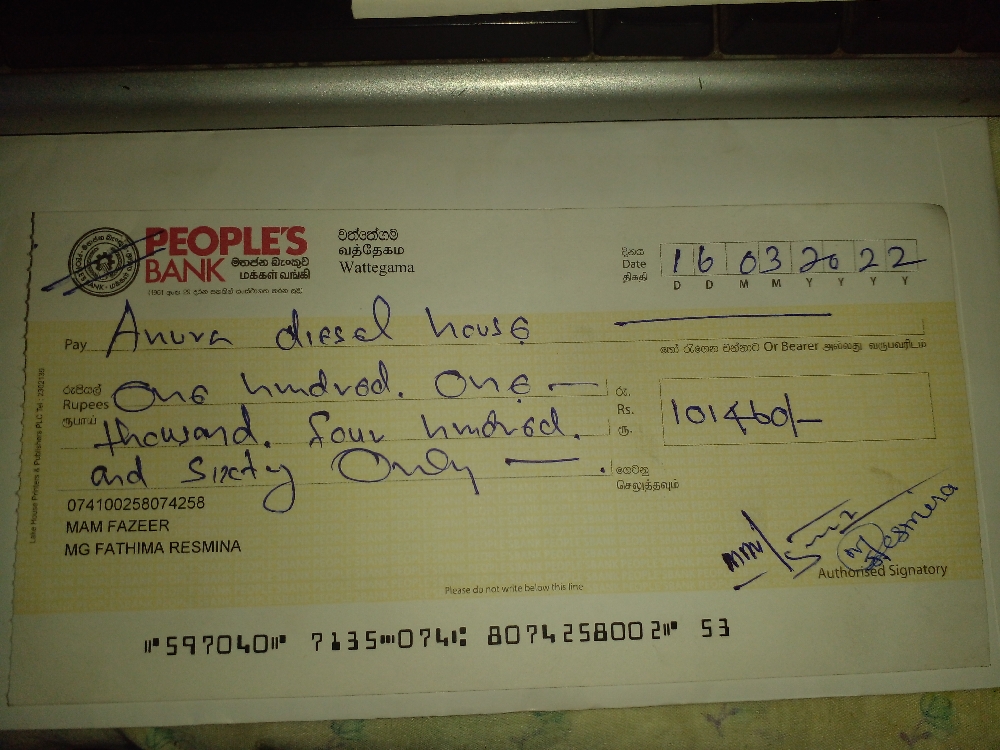 PEOPLE'S
BANK
මහජන බැංකුව
மக்கள் வங்கி
වත්තේගම
வத்தேகம
Wattegama
දිනය
Date
திகதி
16 03 2022
D D M M Y Y Y Y
Pay Anura diesel house
හෝ රැගෙන එන්නාට Or Bearer அல்லது வருபவரிடம்
රුපියල්
Rupees
ரூபாய்
One hundred. One
thousand. four hundred.
and sixty Only
රු.
Rs.
ரூ.
101460/-
ගෙවනු
செலுத்தவும்
074100258074258
MAM FAZEER
MG FATHIMA RESMINA
Resmina
Authorised Signatory
Please do not write below this line
Lake House Printers & Publishers PLC Tel :
⑈597040⑈ 7135⑉074⑆ 8074258002⑈ 53